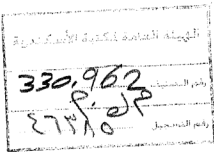 الهيئة العامة لمكتبة الأسكندرية
رقم التصنيف 330.962
رقم التسجيل ٤٦٣٨٥